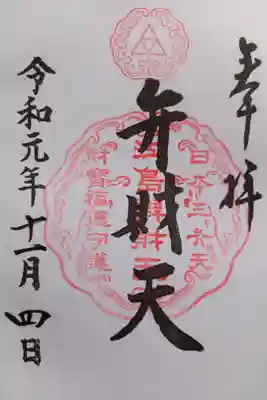 奉拝
日本三弁天
江島辨財天
財寳福徳守護
弁財天
令和元年十一月四日